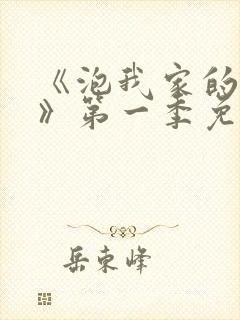 《泡我家的
》第一季免
岳东峰